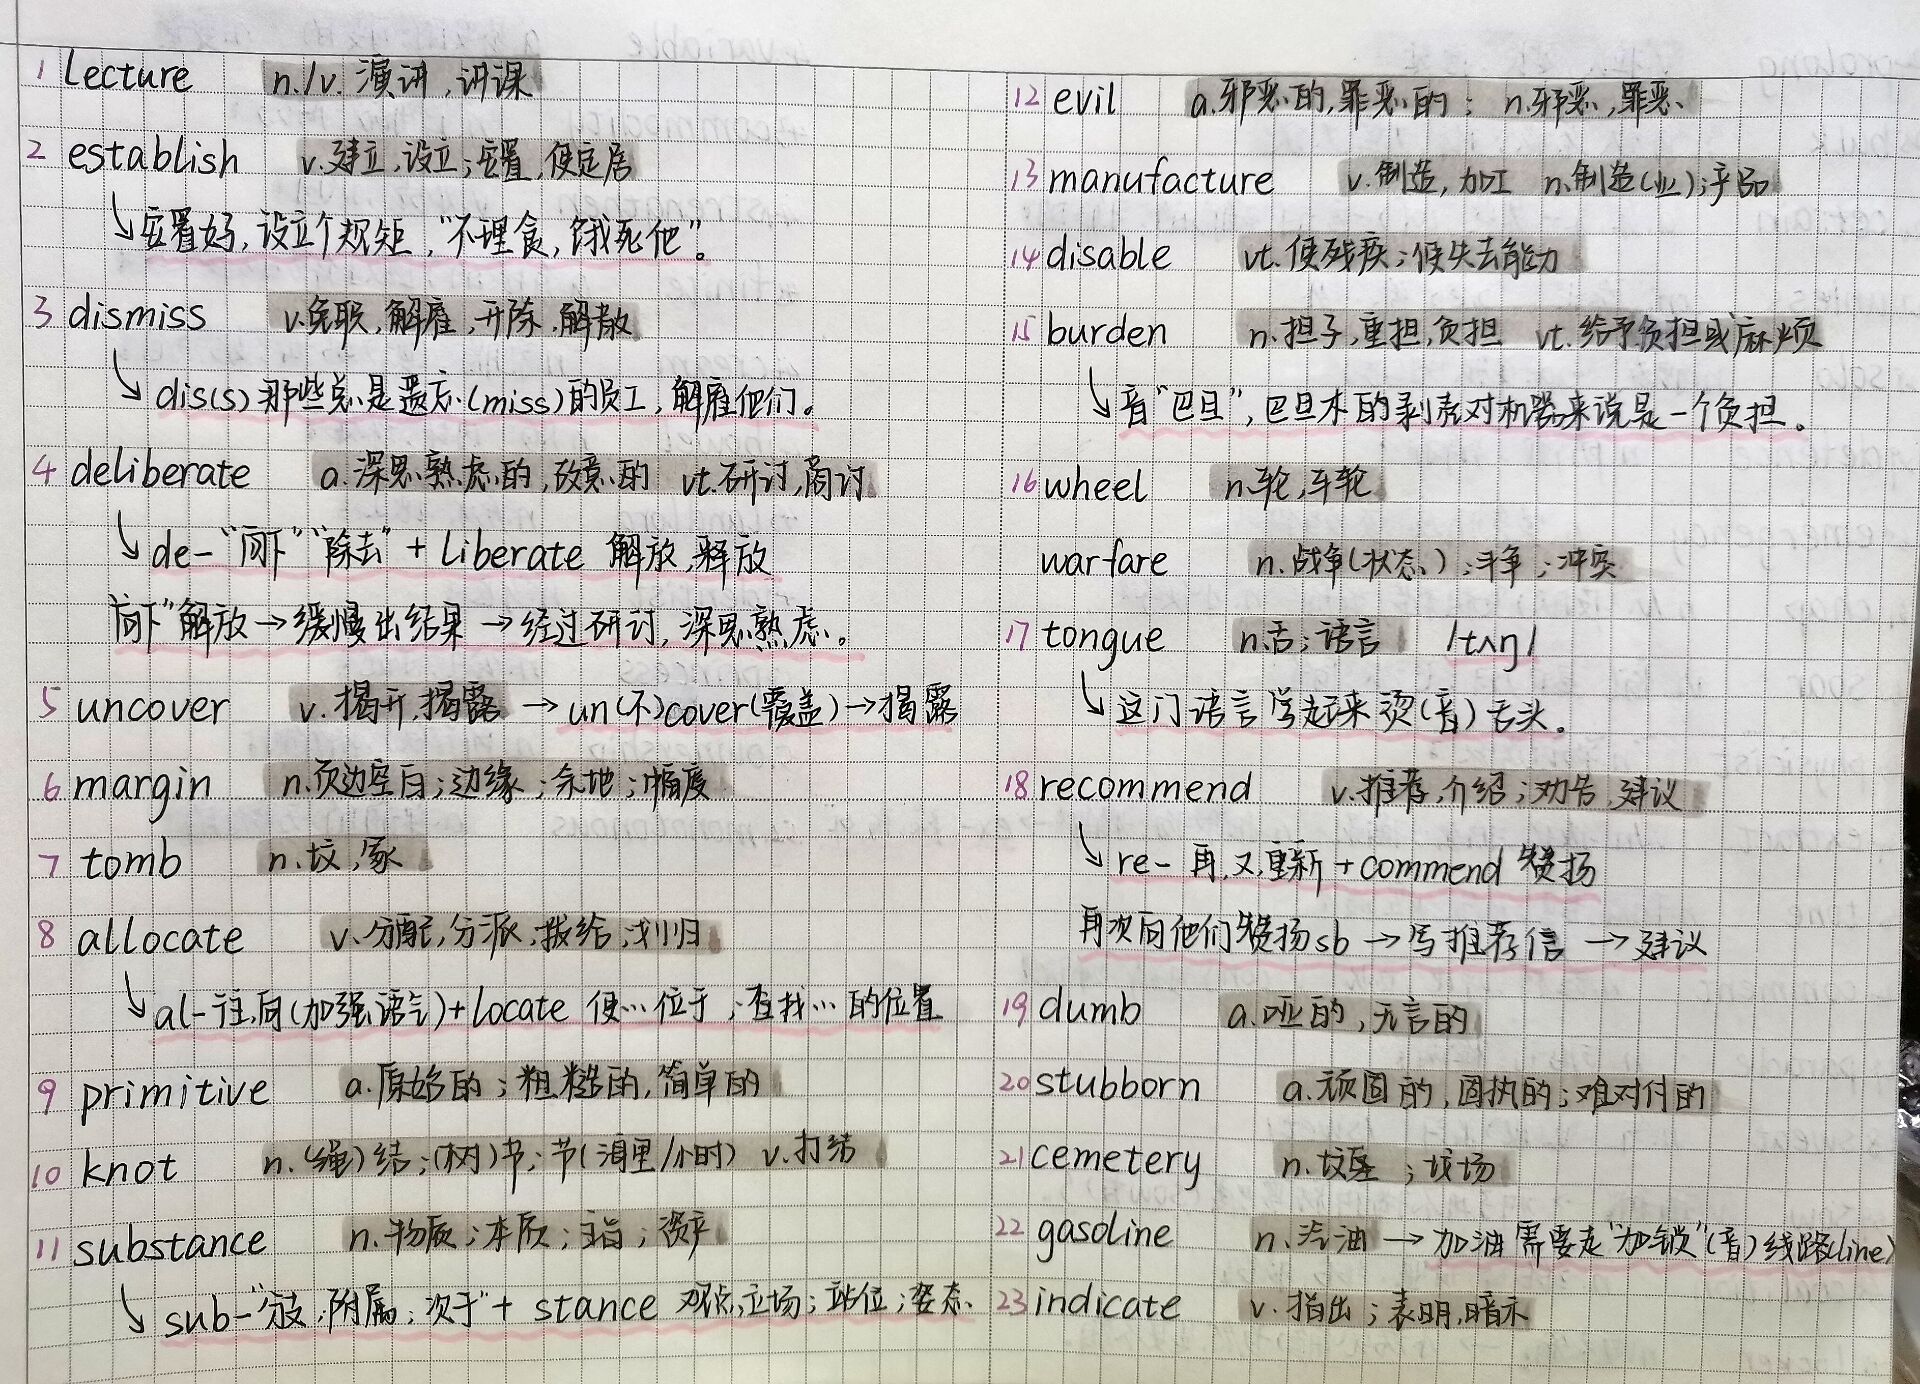 1 Lecture n./v. 演讲,讲课
2 establish v.建立,设立;安置,使定居
↘安置好,设立个规矩,“不理食,饿死他”。
3 dismiss v.免职,解雇,开除,解散
↘dis(s)那些总是遗忘(miss)的员工,解雇他们。
4 deliberate a.深思熟虑的,故意的 vt.研讨,商讨
↘de-“向下”“除去”+ Liberate 解放,释放
“向下”解放→缓慢出结果→经过研讨,深思熟虑。
5 uncover v.揭开,揭露→un(不)cover(覆盖)→揭露
6 margin n.页边空白;边缘;余地;幅度
7 tomb n.坟,冢
8 allocate v.分配,分派,拨给,划归
↘al-往,向(加强语气)+Locate 使…位于;查找…的位置
9 primitive a.原始的;粗糙的,简单的
10 knot n.(绳)结;(树)节;节(海里/小时) v.打结
11 substance n.物质;本质;主旨;资产
↘sub-“分支,附属,次于”+ stance 观点,立场;站位;姿态.
12 evil a.邪恶的,罪恶的; n.邪恶,罪恶
13 manufacture v.制造,加工 n.制造(业);产品
14 disable vt.使残疾;使失去能力
15 burden n.担子,重担,负担 vt.给予负担或麻烦
↘音“巴旦”,巴旦木的剥壳对机器来说是一个负担。
16 wheel n.轮,车轮
warfare n.战争(状态);斗争;冲突
17 tongue n.舌;语言 /tʌŋ/
↘这门语言学起来烫(音)舌头。
18 recommend v.推荐,介绍;劝告,建议
↘re-再,又,重新+commend 赞扬
再次向他们赞扬sb→写推荐信→建议
19 dumb a.哑的,无言的
20 stubborn a.顽固的,固执的;难对付的
21 cemetery n.坟墓;坟场
22 gasoline n.汽油→加油需要走“加锁”(音)线路(line)
23 indicate v.指出;表明,暗示